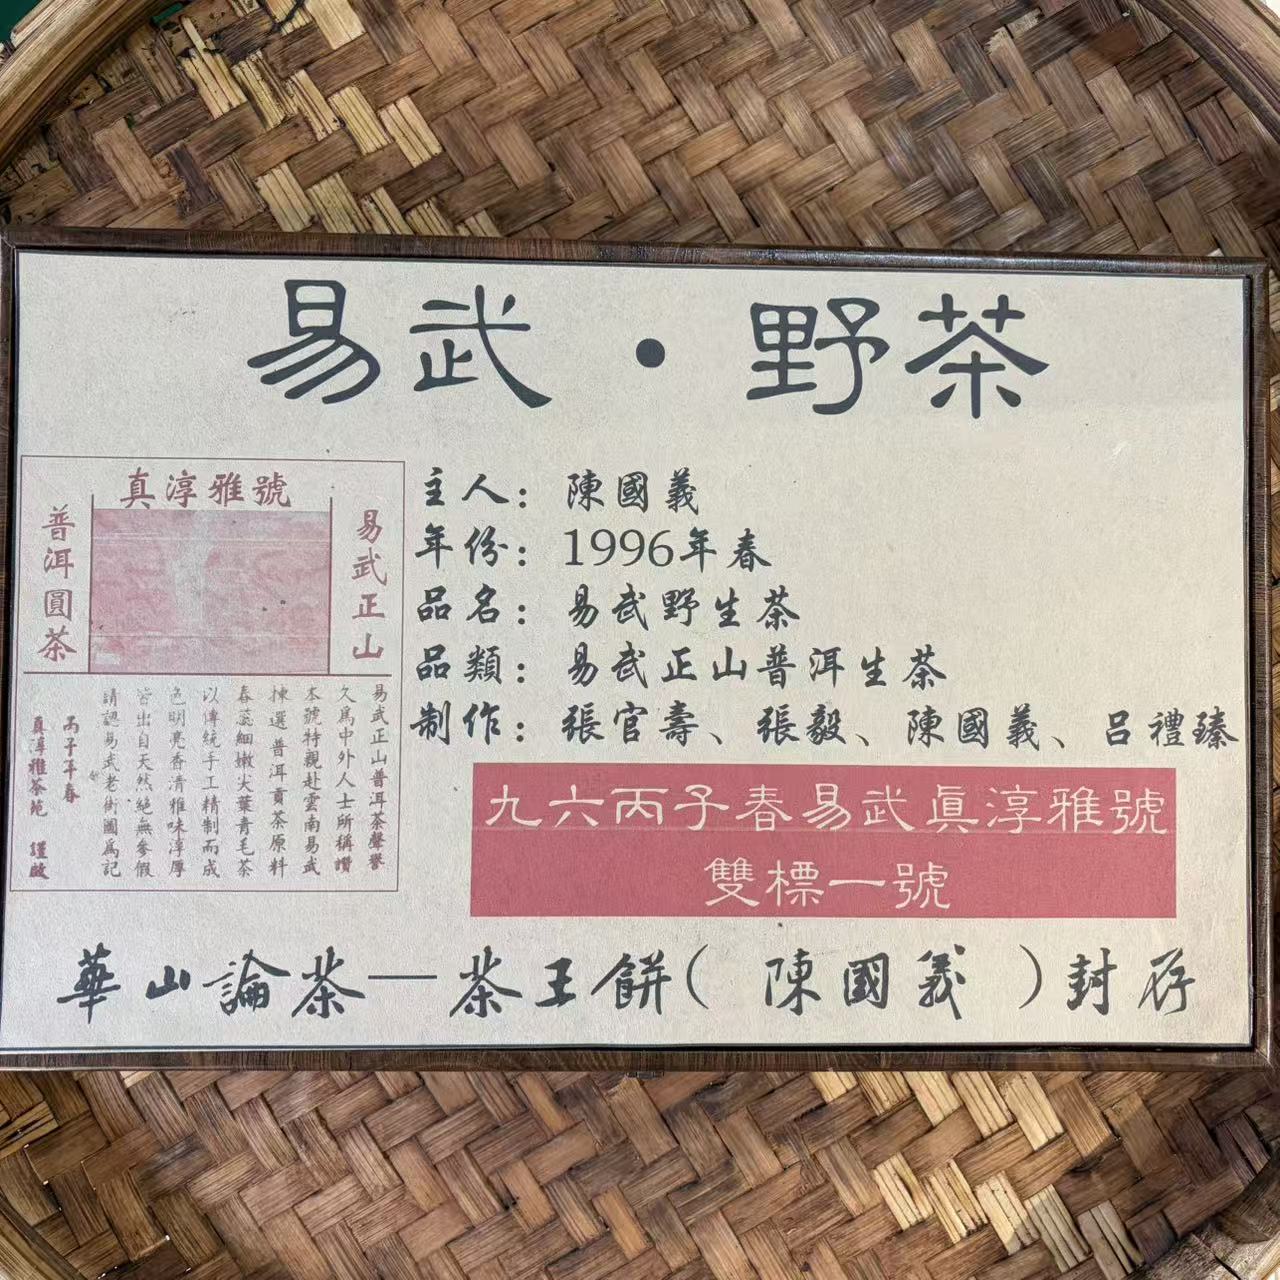 易武·野茶
真淳雅號
普洱圓茶
易武正山
易武正山普洱茶聲譽
久爲中外人士所稱讚
本號特親赴雲南易武
揀選普洱貢茶原料
春蕊細嫩尖葉青毛茶
以傳統手工精制而成
色明亮香清雅味淳厚
皆出自天然絕無參假
請認易武老街圖爲記
丙子年春
真淳雅茶苑 謹啟
主人：陳國義
年份：1996年春
品名：易武野生茶
品類：易武正山普洱生茶
制作：張官壽、張毅、陳國義、呂禮臻
九六丙子春易武眞淳雅號
雙標一號
華山論茶—茶王餅（陳國義）封存